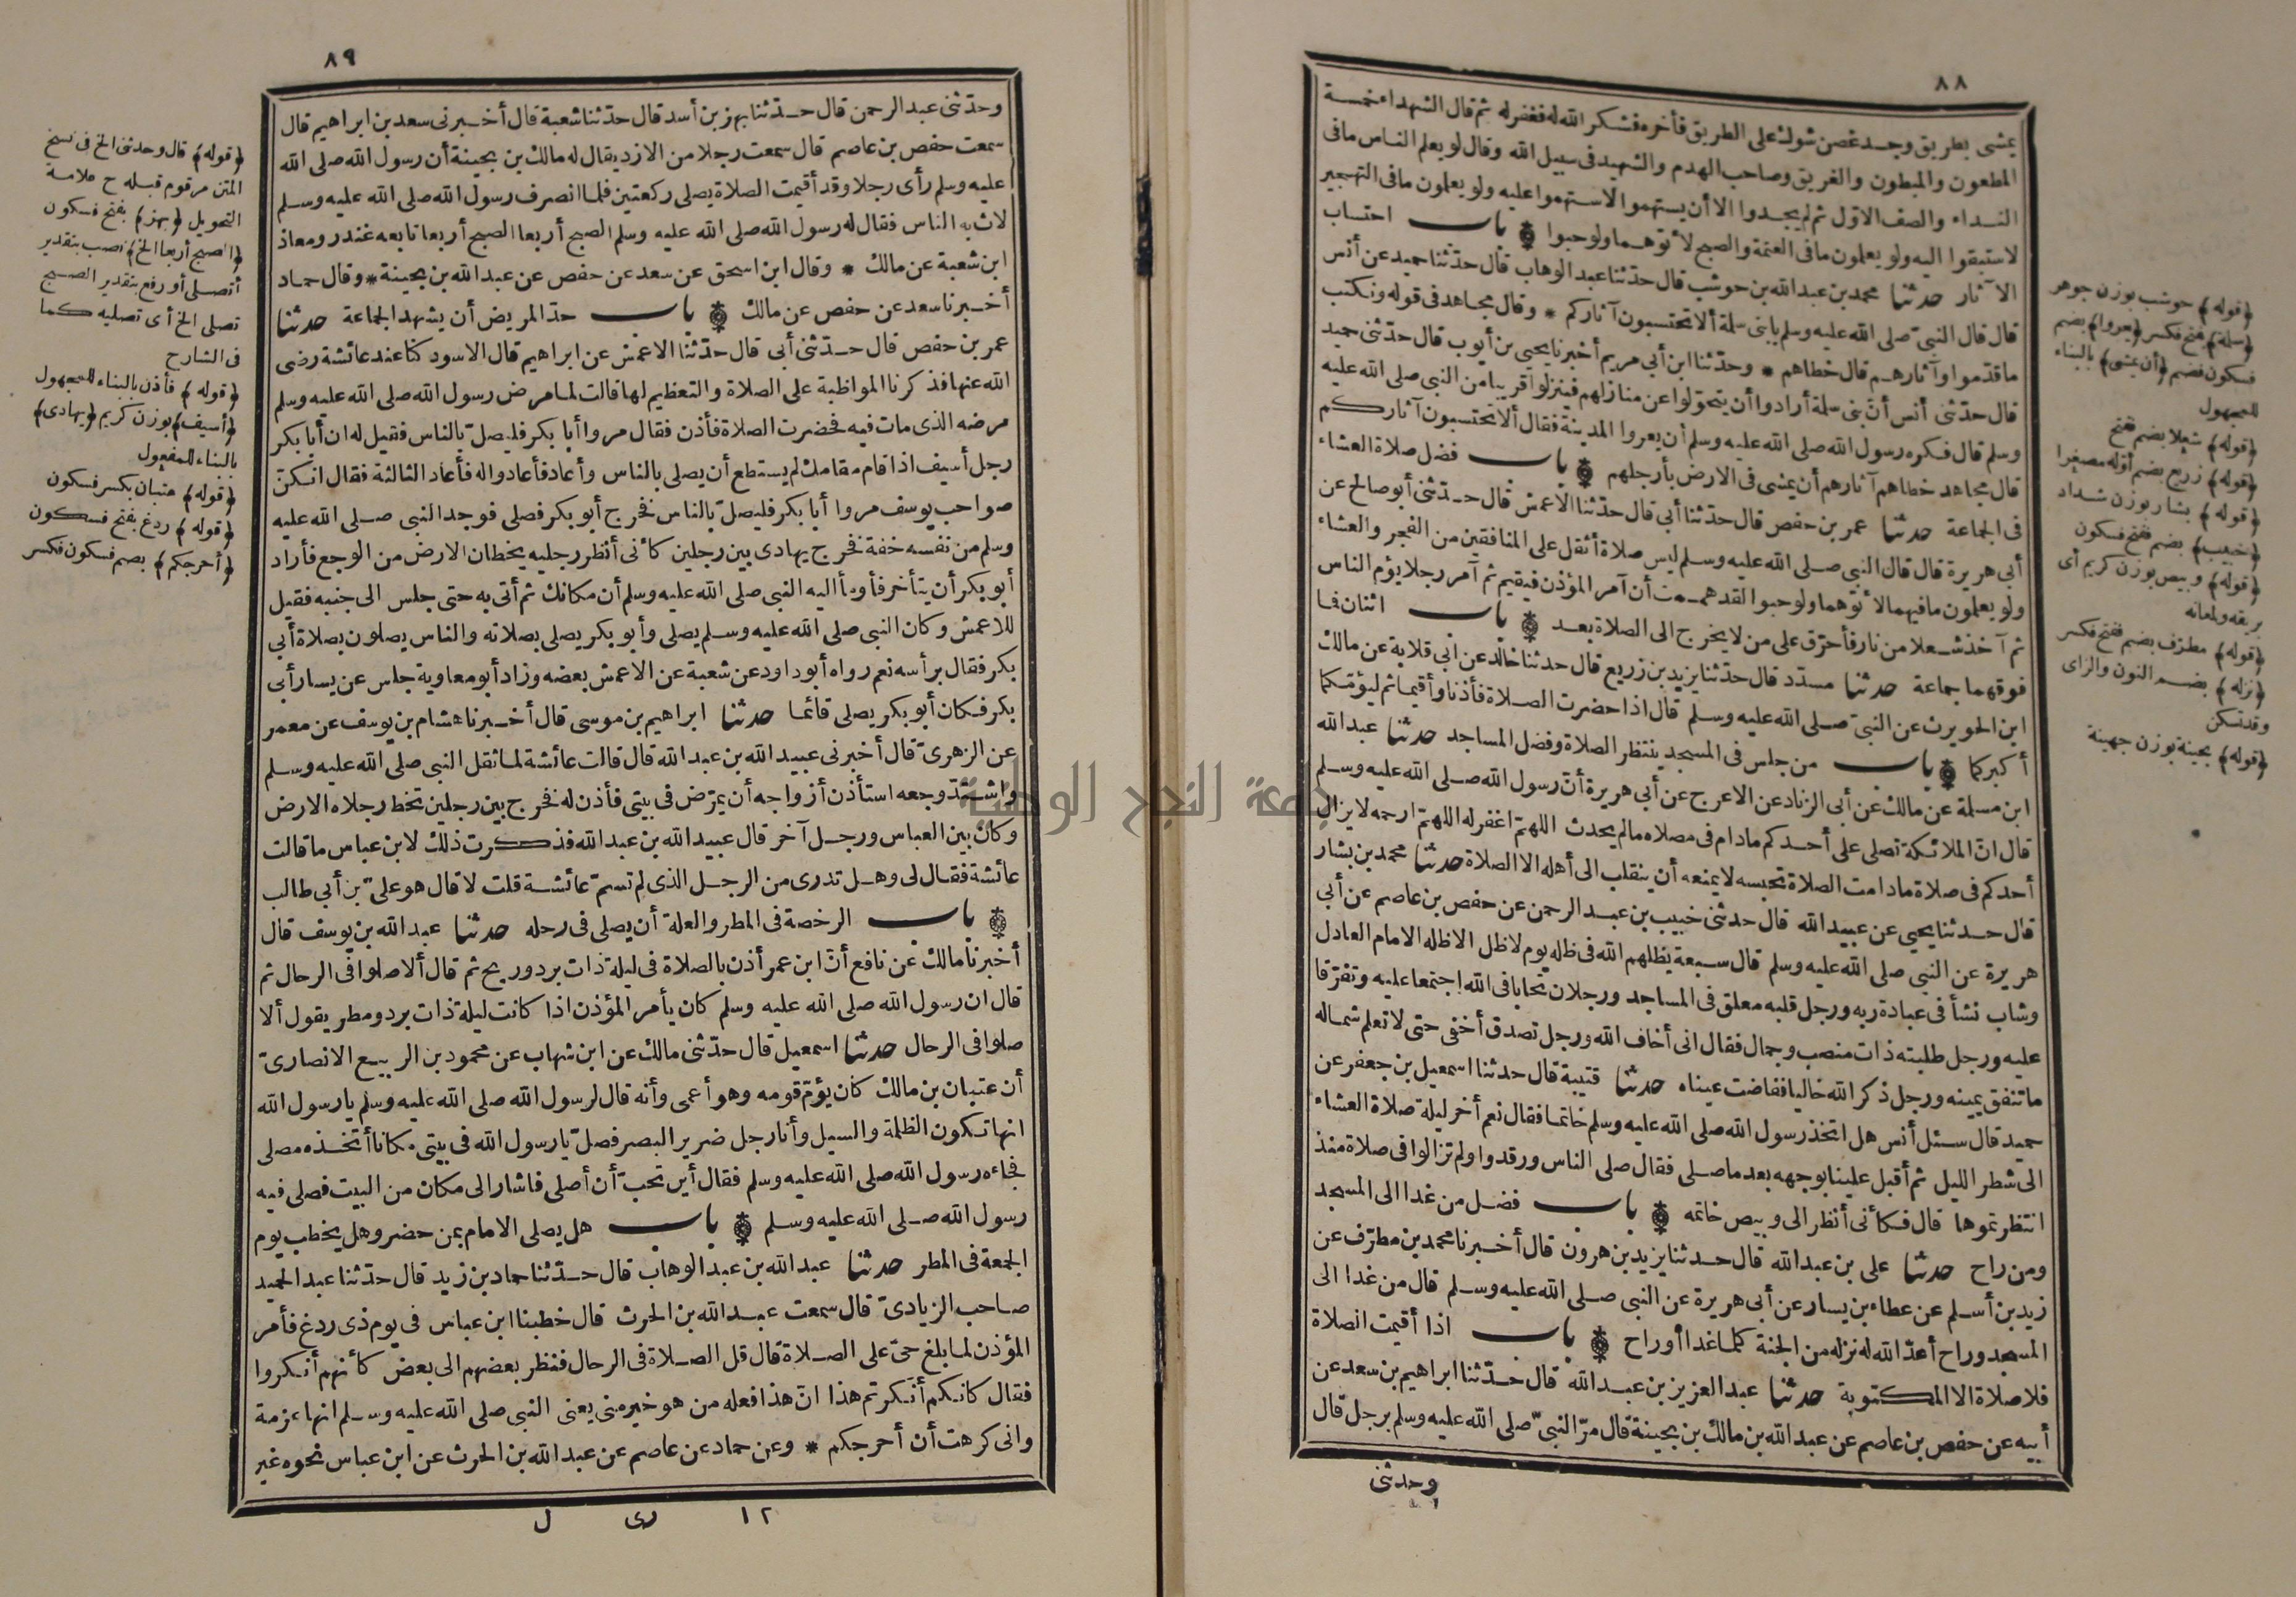 ٨٨
يمشى بطريق وجد غصن شوك على الطريق فأخره فشكر الله له فغفر له ثم قال الشهداء خمسة
المطعون والمبطون والغريق وصاحب الهدم والشهيد فى سبيل الله وقال لو يعلم الناس ما فى
النداء والصف الاوّل ثم لم يجدوا الا أن يستهموا لاستهموا عليه ولو يعلمون ما فى التهجير
لاستبقوا اليه ولو يعلمون ما فى العتمة والصبح لأتوهما ولو حبوا باب احتساب
الآثار حدثنا محمد بن عبد الله بن حوشب قال حدّثنا عبد الوهاب قال حدّثنا حميد عن أنس
قال قال النبىّ صلى الله عليه وسلم يا بنى سلمة ألا تحتسبون آثاركم * وقال مجاهد فى قوله ونكتب
ما قدّموا وآثارهم قال خطاهم * وحدّثنا ابن أبى مريم أخبرنا يحيى بن أيوب قال حدّثنى حميد
قال حدّثنى أنس أنّ بنى سلمة أرادوا أن يتحوّلوا عن منازلهم فينزلوا قريبا من النبى صلى الله عليه
وسلم قال فكره رسول الله صلى الله عليه وسلم أن يعروا المدينة فقال ألا تحتسبون آثاركم
قال مجاهد خطاهم آثارهم أن يمشى فى الارض بأرجلهم باب فضل صلاة العشاء
فى الجماعة حدثنا عمر بن حفص قال حدّثنا أبى قال حدّثنا الاعمش قال حدّثنى أبو صالح عن
أبى هريرة قال قال النبى صلى الله عليه وسلم ليس صلاة أثقل على المنافقين من الفجر والعشاء
ولو يعلمون ما فيهما لأتوهما ولو حبوا لقد هممت أن آمر المؤذن فيقيم ثم آمر رجلا يؤم الناس
ثم آخذ شعلا من نار فأحرّق على من لا يخرج الى الصلاة بعد باب اثنان فما
فوقهما جماعة حدثنا مسدّد قال حدّثنا يزيد بن زريع قال حدثنا خالد عن أبى قلابة عن مالك
ابن الحويرث عن النبىّ صلى الله عليه وسلم قال اذا حضرت الصلاة فأذنا وأقيما ثم ليؤمّكما
أكبركما باب من جلس فى المسجد ينتظر الصلاة وفضل المساجد حدثنا عبد الله
ابن مسلمة عن مالك عن أبى الزناد عن الاعرج عن أبى هريرة أنّ رسول الله صلى الله عليه وسلم
قال انّ الملائكة تصلى على أحدكم مادام فى مصلاه ما لم يحدث اللهمّ اغفر له اللهمّ ارحمه لا يزال
أحدكم فى صلاة مادامت الصلاة تحبسه لا يمنعه أن ينقلب الى أهله الا الصلاة حدثنا محمد بن بشار
قال حدثنا يحيى عن عبيد الله قال حدثنى خبيب بن عبد الرحمن عن حفص بن عاصم عن أبى
هريرة عن النبى صلى الله عليه وسلم قال سبعة يظلهم الله فى ظله يوم لا ظل الا ظله الامام العادل
وشاب نشأ فى عبادة ربه ورجل قلبه معلق فى المساجد ورجلان تحابا فى الله اجتمعا عليه وتفرّقا
عليه ورجل طلبته ذات منصب وجمال فقال انى أخاف الله ورجل تصدق أخفى حتى لا تعلم شماله
ما تنفق يمينه ورجل ذكر الله خاليا ففاضت عيناه حدثنا قتيبة قال حدثنا اسمعيل بن جعفر عن
حميد قال سئل أنس هل اتخذ رسول الله صلى الله عليه وسلم خاتما فقال نعم أخر ليلة صلاة العشاء
الى شطر الليل ثم أقبل علينا بوجهه بعد ما صلى فقال صلى الناس ورقدوا ولم تزالوا فى صلاة منذ
انتظرتموها قال فكأنى أنظر الى وبيص خاتمه باب فضل من غدا الى المسجد
ومن راح حدثنا على بن عبد الله قال حدثنا يزيد بن هرون قال أخبرنا محمد بن مطرّف عن
زيد بن أسلم عن عطاء بن يسار عن أبى هريرة عن النبى صلى الله عليه وسلم قال من غدا الى
المسجد وراح أعدّ الله له نزله من الجنة كلما غدا أو راح باب اذا أقيمت الصلاة
فلا صلاة الا المكتوبة حدثنا عبد العزيز بن عبد الله قال حدّثنا ابراهيم بن سعد عن
أبيه عن حفص بن عاصم عن عبد الله بن مالك بن بحينة قال مرّ النبىّ صلى الله عليه وسلم برجل قال
وحدثنى
﴿قوله﴾ حوشب بوزن جوهر
﴿سلمة﴾ بفتح فكسر ﴿يعروا﴾ بضم
فسكون فضم ﴿أن يمشى﴾ بالبناء
للمجهول
﴿قوله﴾ شعلا بضم ففتح
﴿قوله﴾ زريع بضم أوّله مصغرا
﴿قوله﴾ بشار بوزن شداد
﴿خبيب﴾ بضم ففتح فسكون
﴿قوله﴾ وبيص بوزن كريم أى
بريقه ولمعانه
﴿قوله﴾ مطرّف بضم ففتح فكسر
﴿نزله﴾ بضم النون والزاى
وقد تسكن
﴿قوله﴾ بحينة بوزن جهينة
٨٩
وحدّثنى عبد الرحمن قال حدّثنا بهز بن أسد قال حدّثنا شعبة قال أخبرنى سعد بن ابراهيم قال
سمعت حفص بن عاصم قال سمعت رجلا من الازد يقال له مالك بن بحينة أن رسول الله صلى الله
عليه وسلم رأى رجلا وقد أقيمت الصلاة يصلى ركعتين فلما انصرف رسول الله صلى الله عليه وسلم
لاث به الناس فقال له رسول الله صلى الله عليه وسلم الصبح أربعا الصبح أربعا تابعه غندر ومعاذ
ابن شعبة عن مالك * وقال ابن اسحق عن سعد عن حفص عن عبد الله بن بحينة * وقال حماد
أخبرنا سعد عن حفص عن مالك باب حدّ المريض أن يشهد الجماعة حدثنا
عمر بن حفص قال حدّثنى أبى قال حدّثنا الاعمش عن ابراهيم قال الاسود كنا عند عائشة رضى
الله عنها فذكرنا المواظبة على الصلاة والتعظيم لها قالت لما مرض رسول الله صلى الله عليه وسلم
مرضه الذى مات فيه فحضرت الصلاة فأذن فقال مروا أبا بكر فليصلّ بالناس فقيل له ان أبا بكر
رجل أسيف اذا قام مقامك لم يستطع أن يصلى بالناس وأعاد فأعادوا له فأعاد الثالثة فقال انكنّ
صواحب يوسف مروا أبا بكر فليصلّ بالناس فخرج أبو بكر فصلى فوجد النبى صلى الله عليه
وسلم من نفسه خفة فخرج يهادى بين رجلين كأنى أنظر رجليه يخطان الارض من الوجع فأراد
أبو بكر أن يتأخر فأومأ اليه النبى صلى الله عليه وسلم أن مكانك ثم أتى به حتى جلس الى جنبه فقيل
للاعمش وكان النبى صلى الله عليه وسلم يصلى وأبو بكر يصلى بصلاته والناس يصلون بصلاة أبى
بكر فقال برأسه نعم رواه أبو داود عن شعبة عن الاعمش بعضه وزاد أبو معاوية جلس عن يسار أبى
بكر فكان أبو بكر يصلى قائما حدثنا ابراهيم بن موسى قال أخبرنا هشام بن يوسف عن معمر
عن الزهرىّ قال أخبرنى عبيد الله بن عبد الله قال قالت عائشة لما ثقل النبى صلى الله عليه وسلم
واشتدّ وجعه استأذن أزواجه أن يمرّض فى بيتى فأذن له فخرج بين رجلين تخط رجلاه الارض
وكان بين العباس ورجل آخر قال عبيد الله بن عبد الله فذكرت ذلك لابن عباس ما قالت
عائشة فقال لى وهل تدرى من الرجل الذى لم تسمّ عائشة قلت لا قال هو علىّ بن أبى طالب
باب الرخصة فى المطر والعلة أن يصلى فى رحله حدثنا عبد الله بن يوسف قال
أخبرنا مالك عن نافع أنّ ابن عمر أذن بالصلاة فى ليلة ذات برد وريح ثم قال ألا صلوا فى الرحال ثم
قال ان رسول الله صلى الله عليه وسلم كان يأمر المؤذن اذا كانت ليلة ذات برد ومطر يقول ألا
صلوا فى الرحال حدثنا اسمعيل قال حدّثنى مالك عن ابن شهاب عن محمود بن الربيع الانصارىّ
أن عتبان بن مالك كان يؤمّ قومه وهو أعمى وأنه قال لرسول الله صلى الله عليه وسلم يا رسول الله
انها تكون الظلمة والسيل وأنا رجل ضرير البصر فصلّ يا رسول الله فى بيتى مكانا أتخذه مصلى
فجاءه رسول الله صلى الله عليه وسلم فقال أين تحبّ أن أصلى فاشار الى مكان من البيت فصلى فيه
رسول الله صلى الله عليه وسلم باب هل يصلى الامام بمن حضر وهل يخطب يوم
الجمعة فى المطر حدثنا عبد الله بن عبد الوهاب قال حدّثنا حماد بن زيد قال حدّثنا عبد الحميد
صاحب الزيادىّ قال سمعت عبد الله بن الحرث قال خطبنا ابن عباس فى يوم ذى ردغ فأمر
المؤذن لما بلغ حىّ على الصلاة قال قل الصلاة فى الرحال فنظر بعضهم الى بعض كأنهم أنكروا
فقال كانكم أنكرتم هذا انّ هذا فعله من هو خير منى يعنى النبى صلى الله عليه وسلم انها عزمة
وانى كرهت أن أحرجكم * وعن حماد عن عاصم عن عبد الله بن الحرث عن ابن عباس نحوه غير
١٢ رى ل
﴿قوله﴾ قال وحدثنى الخ فى نسخ
المتن مرقوم قبله ح علامة
التحويل ﴿بهز﴾ بفتح فسكون
﴿الصبح أربعا الخ﴾ نصب بتقدير
أتصلى أو رفع بتقدير الصبح
تصلى الخ أى تصليه كما
فى الشارح
﴿قوله﴾ فأذن بالبناء للمجهول
﴿أسيف﴾ بوزن كريم ﴿يهادى﴾
بالبناء للمفعول
﴿قوله﴾ عتبان بكسر فسكون
﴿قوله﴾ ردغ بفتح فسكون
﴿أحرجكم﴾ بضم فسكون فكسر
جامعة النجاح الوطنية